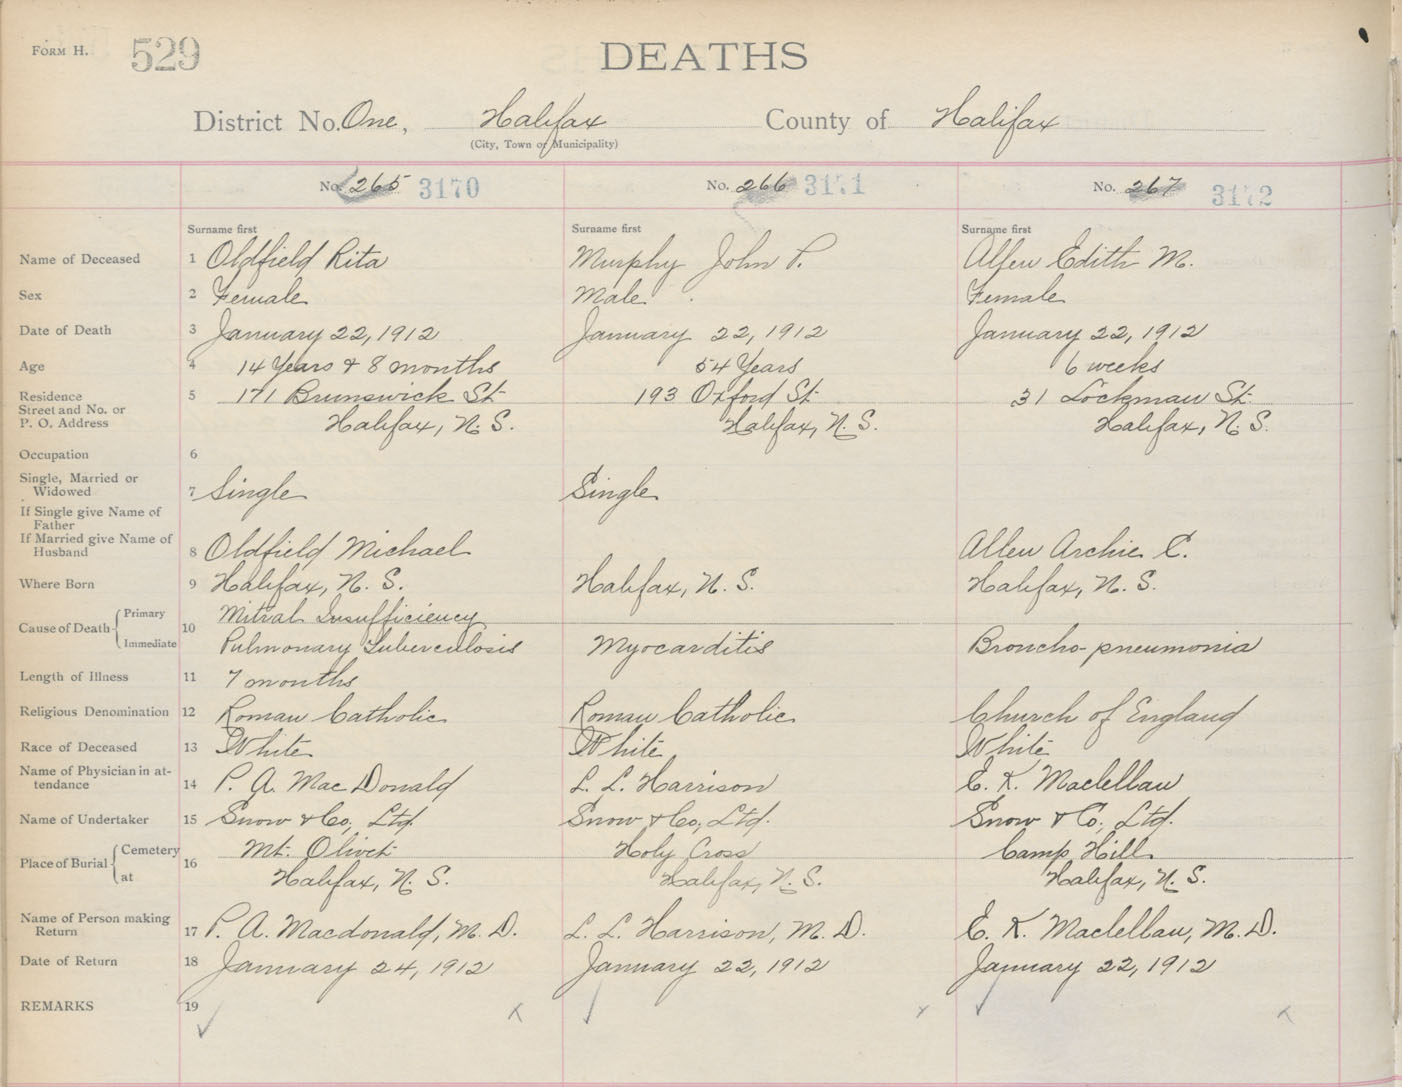 FORM H. 529 DEATHS
District No. One, Halifax County of Halifax
(City, Town or Municipality)
No. 265 3170 No. 266 3171 No. 267 3172
Surname first Surname first Surname first
Name of Deceased 1 Oldfield Rita Murphy John P. Allen Edith M.
Sex 2 Female Male Female
Date of Death 3 January 22, 1912 January 22, 1912 January 22, 1912
Age 4 14 Years & 8 months 54 Years 6 weeks
Residence 5 171 Brunswick St. 193 Oxford St. 31 Lockman St.
Street and No. or
P. O. Address Halifax, N. S. Halifax, N. S. Halifax, N. S.
Occupation 6
Single, Married or
Widowed 7 Single Single
If Single give Name of
Father
If Married give Name of
Husband 8 Oldfield Michael Allen Archie C.
Where Born 9 Halifax, N. S. Halifax, N. S. Halifax, N. S.
Cause of Death Primary 10 Mitral Insufficiency
Immediate Pulmonary Tuberculosis Myocarditis Broncho-pneumonia
Length of Illness 11 7 months
Religious Denomination 12 Roman Catholic Roman Catholic Church of England
Race of Deceased 13 White White White
Name of Physician in at-
tendance 14 P. A. MacDonald L. L. Harrison E. K. Maclellan
Name of Undertaker 15 Snow & Co., Ltd. Snow & Co., Ltd. Snow & Co., Ltd.
Place of Burial Cemetery 16 Mt. Olivet Holy Cross Camp Hill
at Halifax, N. S. Halifax, N. S. Halifax, N. S.
Name of Person making
Return 17 P. A. Macdonald, M. D. L. L. Harrison, M. D. E. K. Maclellan, M. D.
Date of Return 18 January 24, 1912 January 22, 1912 January 22, 1912
REMARKS 19